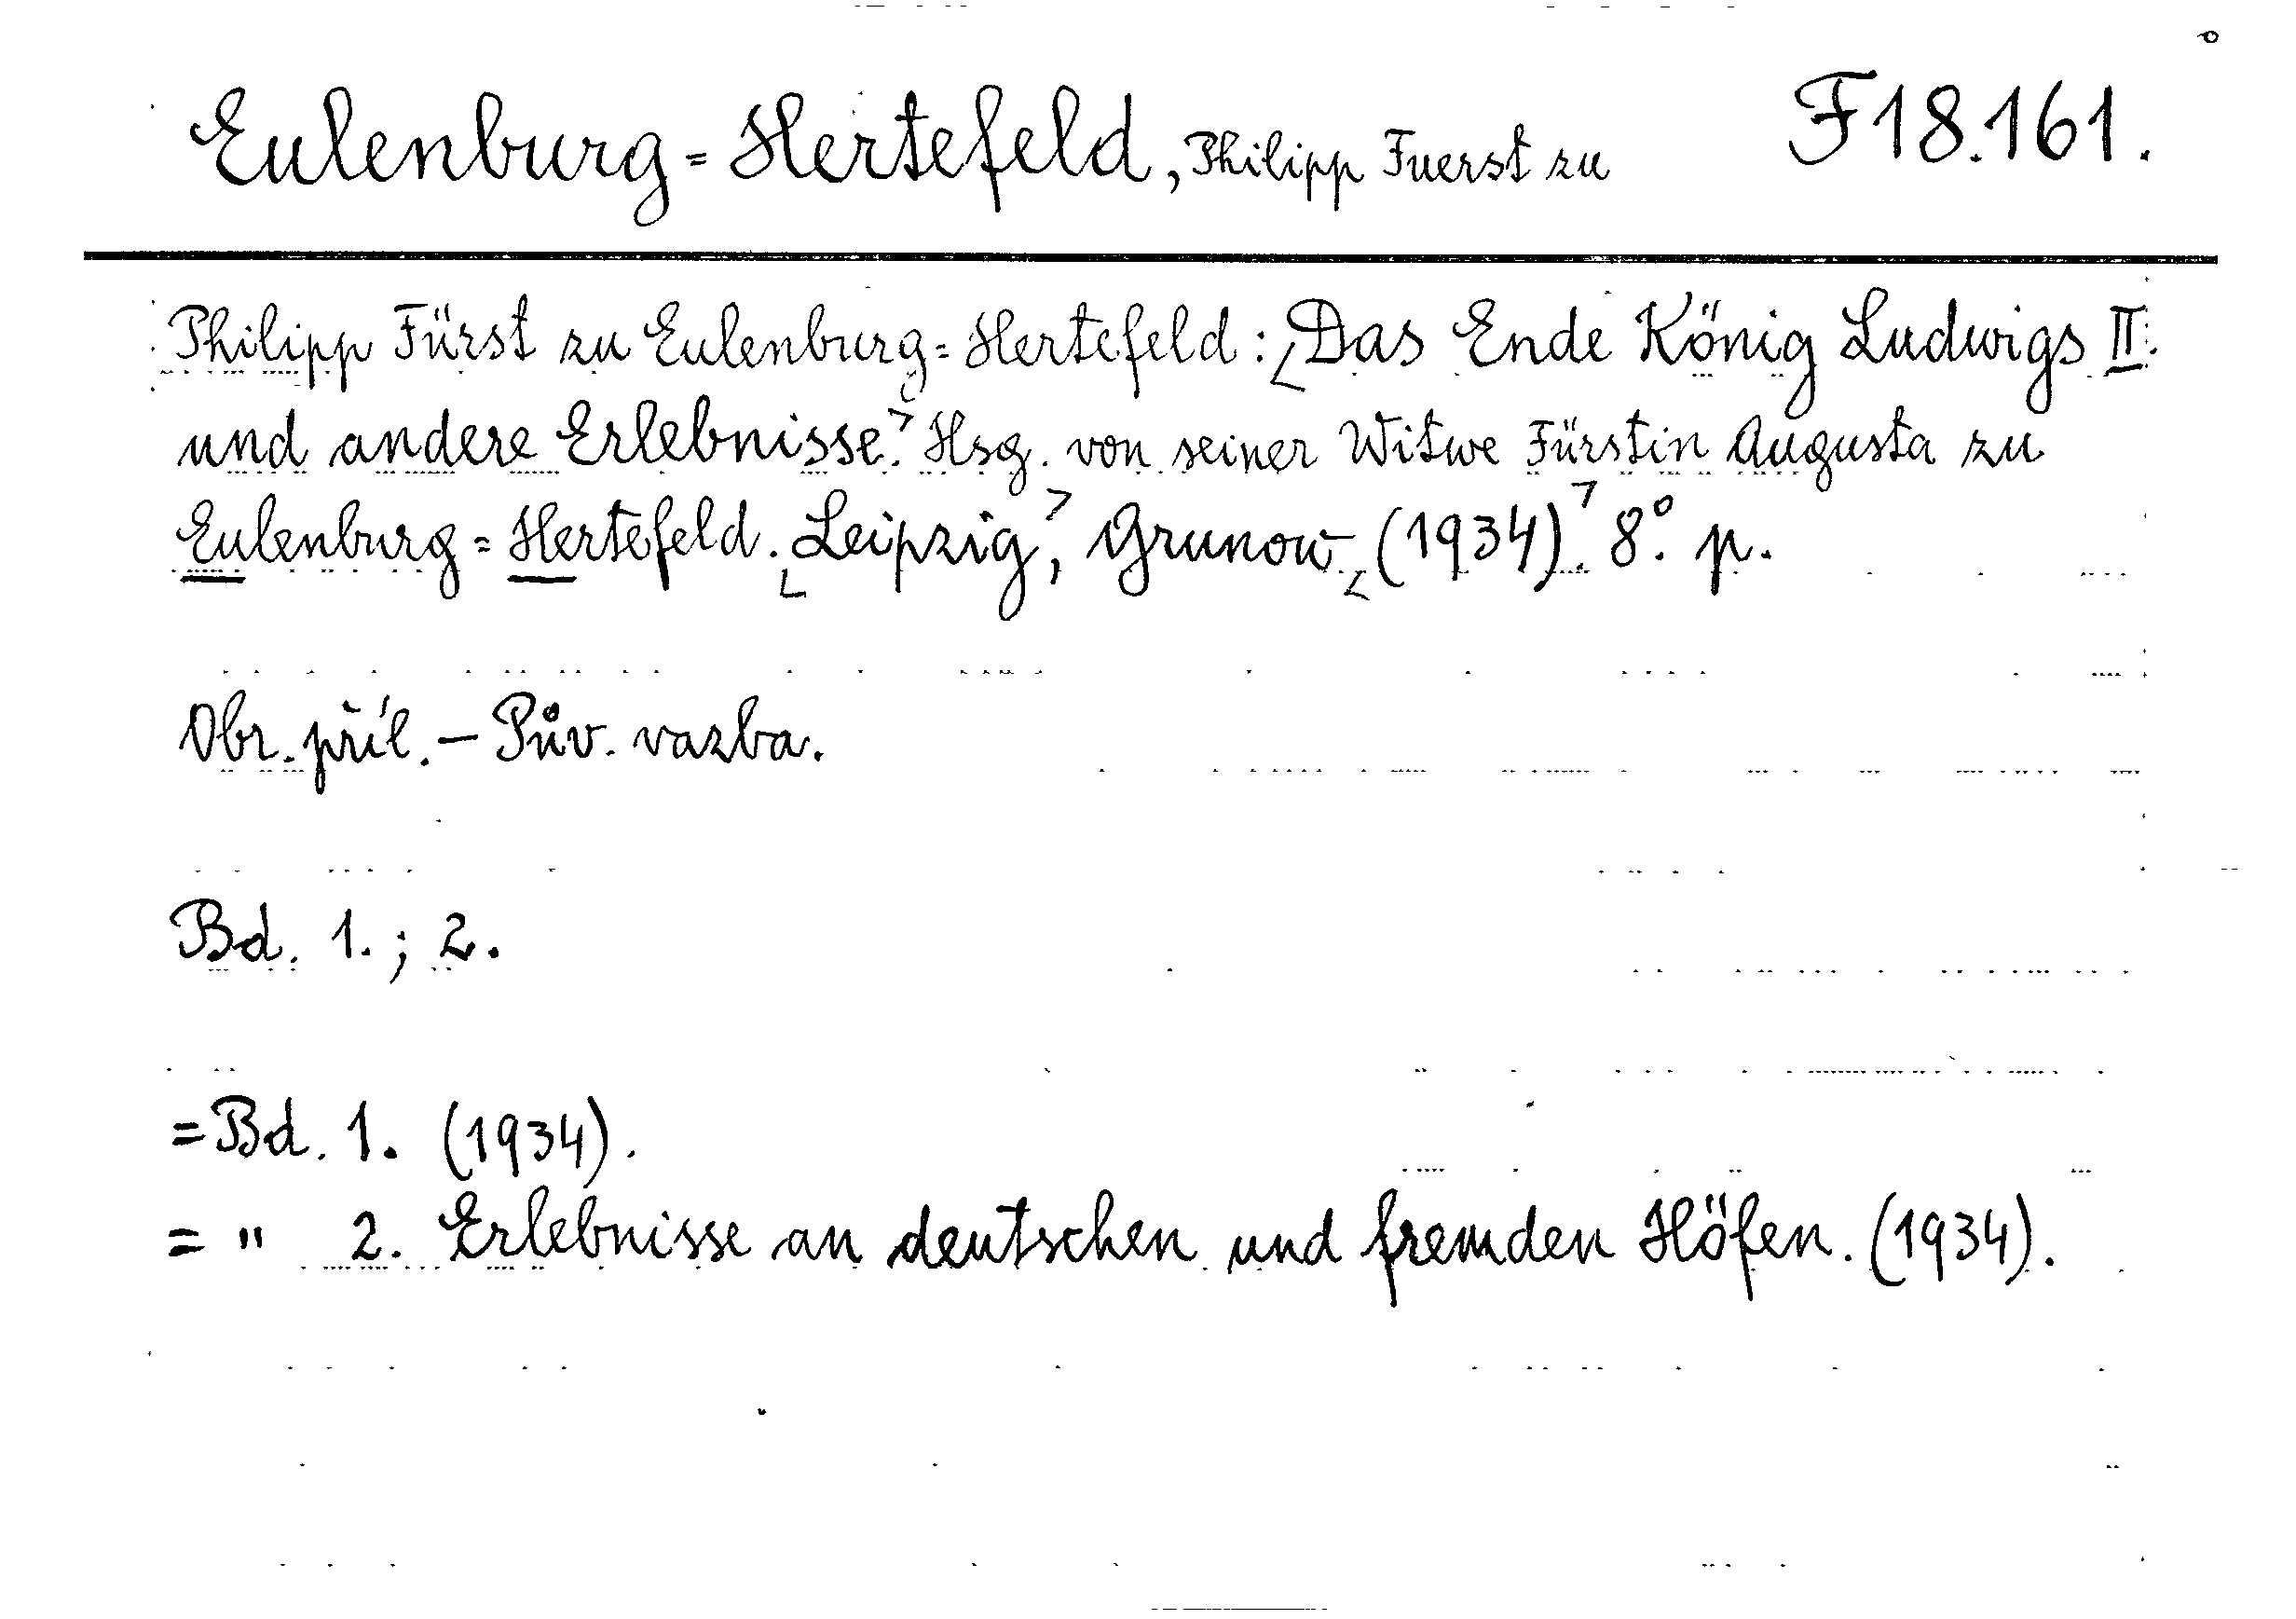 Eulenburg=Hertefeld, Philipp Fuerst zu F18.161.
Philipp Fürst zu Eulenburg=Hertefeld: Das Ende König Ludwigs II.
und andere Erlebnisse. Hsg. von seiner Witwe Fürstin Augusta zu
Eulenburg=Hertefeld. Leipzig, Grunow (1934). 8°. p.
Obr. příl. – Pův. vazba.
Bd. 1.; 2.
=Bd. 1. (1934).
= " 2. Erlebnisse an deutschen und fremden Höfen. (1934).